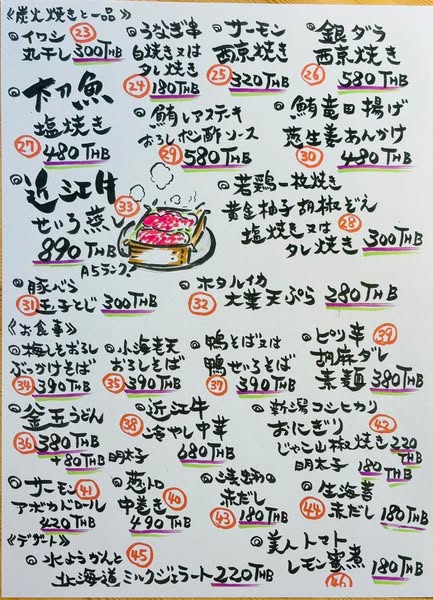 《炭火焼きと一品》
◎イワシ 23
丸干し 300THB
◎うなぎ串
白焼き又は
タレ焼き
24 180THB
◎サーモン
西京焼き
25 320THB
◎銀ダラ
西京焼き
26 580THB
◎
塩焼き
27 480THB
◎鮪レアステーキ
おろしポン酢ソース
29 580THB
◎鮪竜田揚げ
葱生姜あんかけ
30 480THB
◎近江牛
せいろ蒸し 33
890THB
A5ランク
◎若鶏一枚焼き
黄金柚子胡椒ぞえ
塩焼き又は 28
タレ焼き 300THB
◎豚バラ
31 玉子とじ 300THB
◎ホタルイカ
32 大葉天ぷら 280THB
《お食事》
◎梅しそおろし
ぶっかけそば
34 390THB
◎小海老天
おろしそば
35 390THB
◎鴨そば又は
鴨せいろそば
37 390THB
◎ピリ辛 39
胡麻ダレ
素麺 380THB
◎釜玉うどん
36 380THB
+80THB 明太子
◎近江牛
38 冷やし中華
680THB
◎新潟コシヒカリ
おにぎり 42
じゃこ山椒焼き 220THB
明太子 180THB
◎サーモン 41
アボカドロール
420THB
◎葱トロ 40
中巻き
490THB
◎浅蜊の
赤だし
43 180THB
◎生海苔
44 赤だし 180THB
《デザート》
◎水ようかんと 45
北海道ミルクジェラート 220THB
◎美人トマト
レモン蜜煮 180THB
46